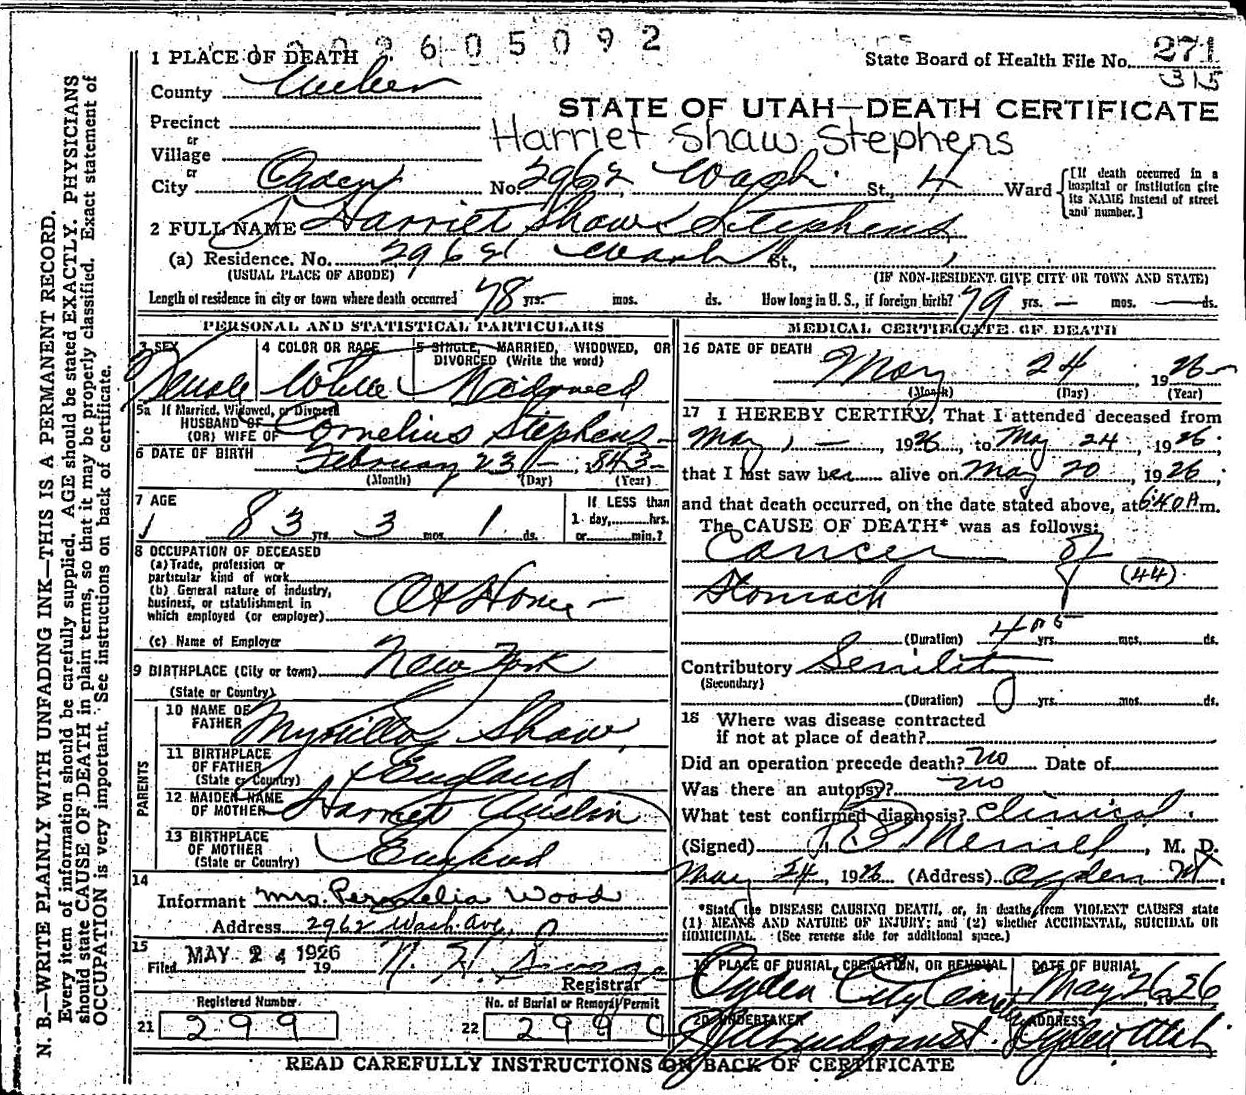 0 0 2 6 0 5 0 9 2
1 PLACE OF DEATH
State Board of Health File No. 271
315
County Weber
STATE OF UTAH—DEATH CERTIFICATE
Precinct
Harriet Shaw Stephens
or
Village
or
City Ogden No. 2962 Wash. St., 4 Ward
[If death occurred in a
hospital or institution give
its NAME instead of street
and number.]
2 FULL NAME Harriet Shaw Stephens
(a) Residence. No. 2962 Wash St.,
(USUAL PLACE OF ABODE) (IF NON-RESIDENT GIVE CITY OR TOWN AND STATE)
Length of residence in city or town where death occurred 78 yrs. — mos. ds. How long in U. S., if foreign birth? 79 yrs. — mos. — ds.
PERSONAL AND STATISTICAL PARTICULARS
3 SEX
Female
4 COLOR OR RACE
White
5 SINGLE, MARRIED, WIDOWED, OR
DIVORCED (Write the word)
Widowed
5a If Married, Widowed, or Divorced
HUSBAND OF
(OR) WIFE OF Cornelius Stephens
6 DATE OF BIRTH February 23 — 1843
(Month) (Day) (Year)
7 AGE
83 yrs. 3 mos. 1 ds.
If LESS than
1 day,........hrs.
or........min.?
8 OCCUPATION OF DECEASED
(a) Trade, profession or
particular kind of work
(b) General nature of industry,
business, or establishment in
which employed (or employer) At Home —
(c) Name of Employer
9 BIRTHPLACE (City or town) New York
(State or Country)
PARENTS
10 NAME OF
FATHER Myrtillo Shaw
11 BIRTHPLACE
OF FATHER
(State or Country) England
12 MAIDEN NAME
OF MOTHER Harriet Austin
13 BIRTHPLACE
OF MOTHER
(State or Country) England
14
Informant Mrs. Permelia Wood
Address 2962 Wash. Ave. O
15
Filed MAY 24 1926 19
Registrar
Registered Number
21 299
No. of Burial or Removal Permit
22 299
MEDICAL CERTIFICATE OF DEATH
16 DATE OF DEATH
May 24, 1926
(Month) (Day) (Year)
17 I HEREBY CERTIFY, That I attended deceased from
May 1, — 1926, to May 24, 1926,
that I last saw her alive on May 20, 1926,
and that death occurred, on the date stated above, at 6:40 A m.
The CAUSE OF DEATH* was as follows:
Cancer of
Stomach (44)
(Duration) 4 yrs. mos. ds.
Contributory Senility
(Secondary)
(Duration) yrs. mos. ds.
18 Where was disease contracted
if not at place of death?
Did an operation precede death? no Date of
Was there an autopsy? no
What test confirmed diagnosis? Clinical
(Signed) Merrill, M. D.
May 24, 1926 (Address) Ogden Ut.
*State the DISEASE CAUSING DEATH, or, in deaths from VIOLENT CAUSES state
(1) MEANS AND NATURE OF INJURY; and (2) whether ACCIDENTAL, SUICIDAL OR
HOMICIDAL. (See reverse side for additional space.)
19 PLACE OF BURIAL, CREMATION, OR REMOVAL
Ogden City Cemetery
DATE OF BURIAL
May 26 1926
20 UNDERTAKER
Lindquist
ADDRESS
Ogden Utah
READ CAREFULLY INSTRUCTIONS ON BACK OF CERTIFICATE
N. B.—WRITE PLAINLY WITH UNFADING INK—THIS IS A PERMANENT RECORD.
Every item of information should be carefully supplied. AGE should be stated EXACTLY. PHYSICIANS
should state CAUSE OF DEATH in plain terms, so that it may be properly classified. Exact statement of
OCCUPATION is very important. See instructions on back of certificate.